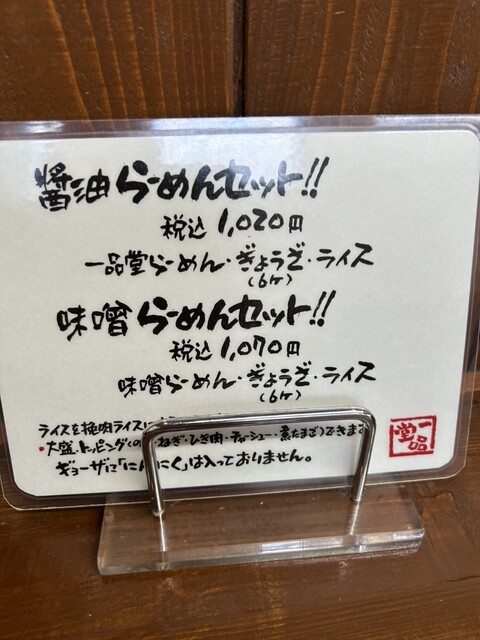 醤油らーめんセット!!
税込 1,020円
一品堂らーめん・ぎょうざ・ライス
(6ケ)
味噌らーめんセット!!
税込 1,070円
味噌らーめん・ぎょうざ・ライス
(6ケ)
ライスを挽肉ライスに
•大盛・トッピング ねぎ・ひき肉・チャーシュー・煮たまご)できます
ギョーザに「にんにく」は入っておりません。
一品堂